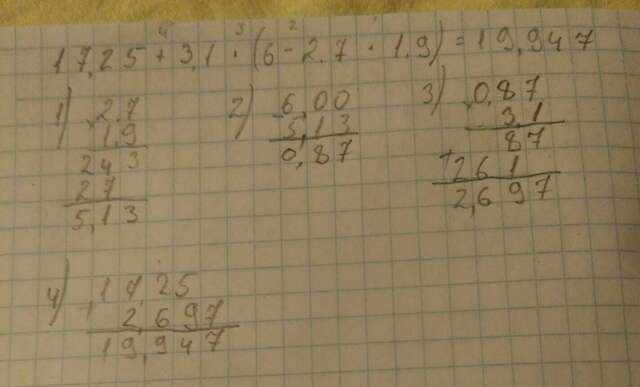 4 3 2 1
17,25 + 3,1 · (6 - 2,7 · 1,9) = 19,947
1) 2,7
× 1,9
243
27
5,13
2) 6,00
- 5,13
0,87
3) 0,87
× 3,1
87
+ 261
2,697
4) 17,25
+ 2,697
19,947